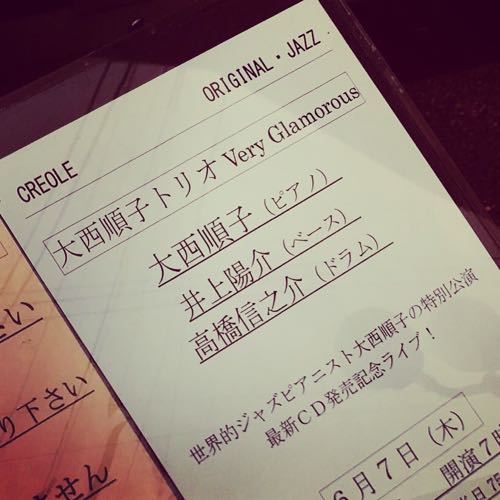 CREOLE
ORIGINAL・JAZZ
大西順子トリオ Very Glamorous
大西順子（ピアノ）
井上陽介（ベース）
高橋信之介（ドラム）
世界的ジャズピアニスト大西順子の特別公演
最新ＣＤ発売記念ライブ！
６月７日（木）
開演７時
さい
り下さい
ません